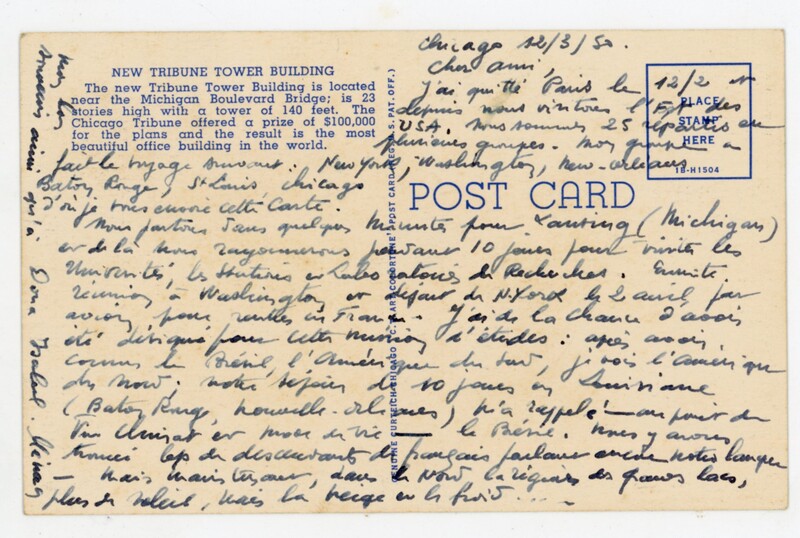 NEW TRIBUNE TOWER BUILDING
The new Tribune Tower Building is located
near the Michigan Boulevard Bridge; is 23
stories high with a tower of 140 feet. The
Chicago Tribune offered a prize of $100,000
for the plans and the result is the most
beautiful office building in the world.
POST CARD
PLACE
STAMP
HERE
1B-H1504
Chicago 12/3/50.
Cher ami,
J'ai quitté Paris le 12/2 et
depuis nous visitons l'Est des
USA. Nous sommes 25 répartis en
plusieurs groupes. Mon groupe a
fait le voyage suivant: New York, Washington, New-Orléans
Baton Rouge, St Louis, Chicago
d'où je vous envoie cette carte.
Nous partons dans quelques minutes pour Lansing (Michigan)
et de là nous rayonnerons pendant 10 jours pour visiter les
Universités, les Instituts et Laboratoires de Recherches. Ensuite
réunion à Washington et départ de N.York le 2 avril par
avion pour rentrer en France. J'ai de la chance d'avoir
été désigné pour cette mission d'études: après avoir
connu le Brésil, l'Amérique du Sud, je vois l'Amérique
du Nord; notre séjour de 10 jours en Louisiane
(Baton Rouge, Nouvelle-Orléans) m'a rappelé — au point de
vue climat et mode de vie — le Brésil. Nous y avons
trouvé bcp de descendants de français parlant encore notre langue
— Mais maintenant, dans le Nord la région des grands lacs,
plus de soleil, mais la neige et le froid ....
Mes bons
souvenirs ainsi qu'à Dona Isabel.